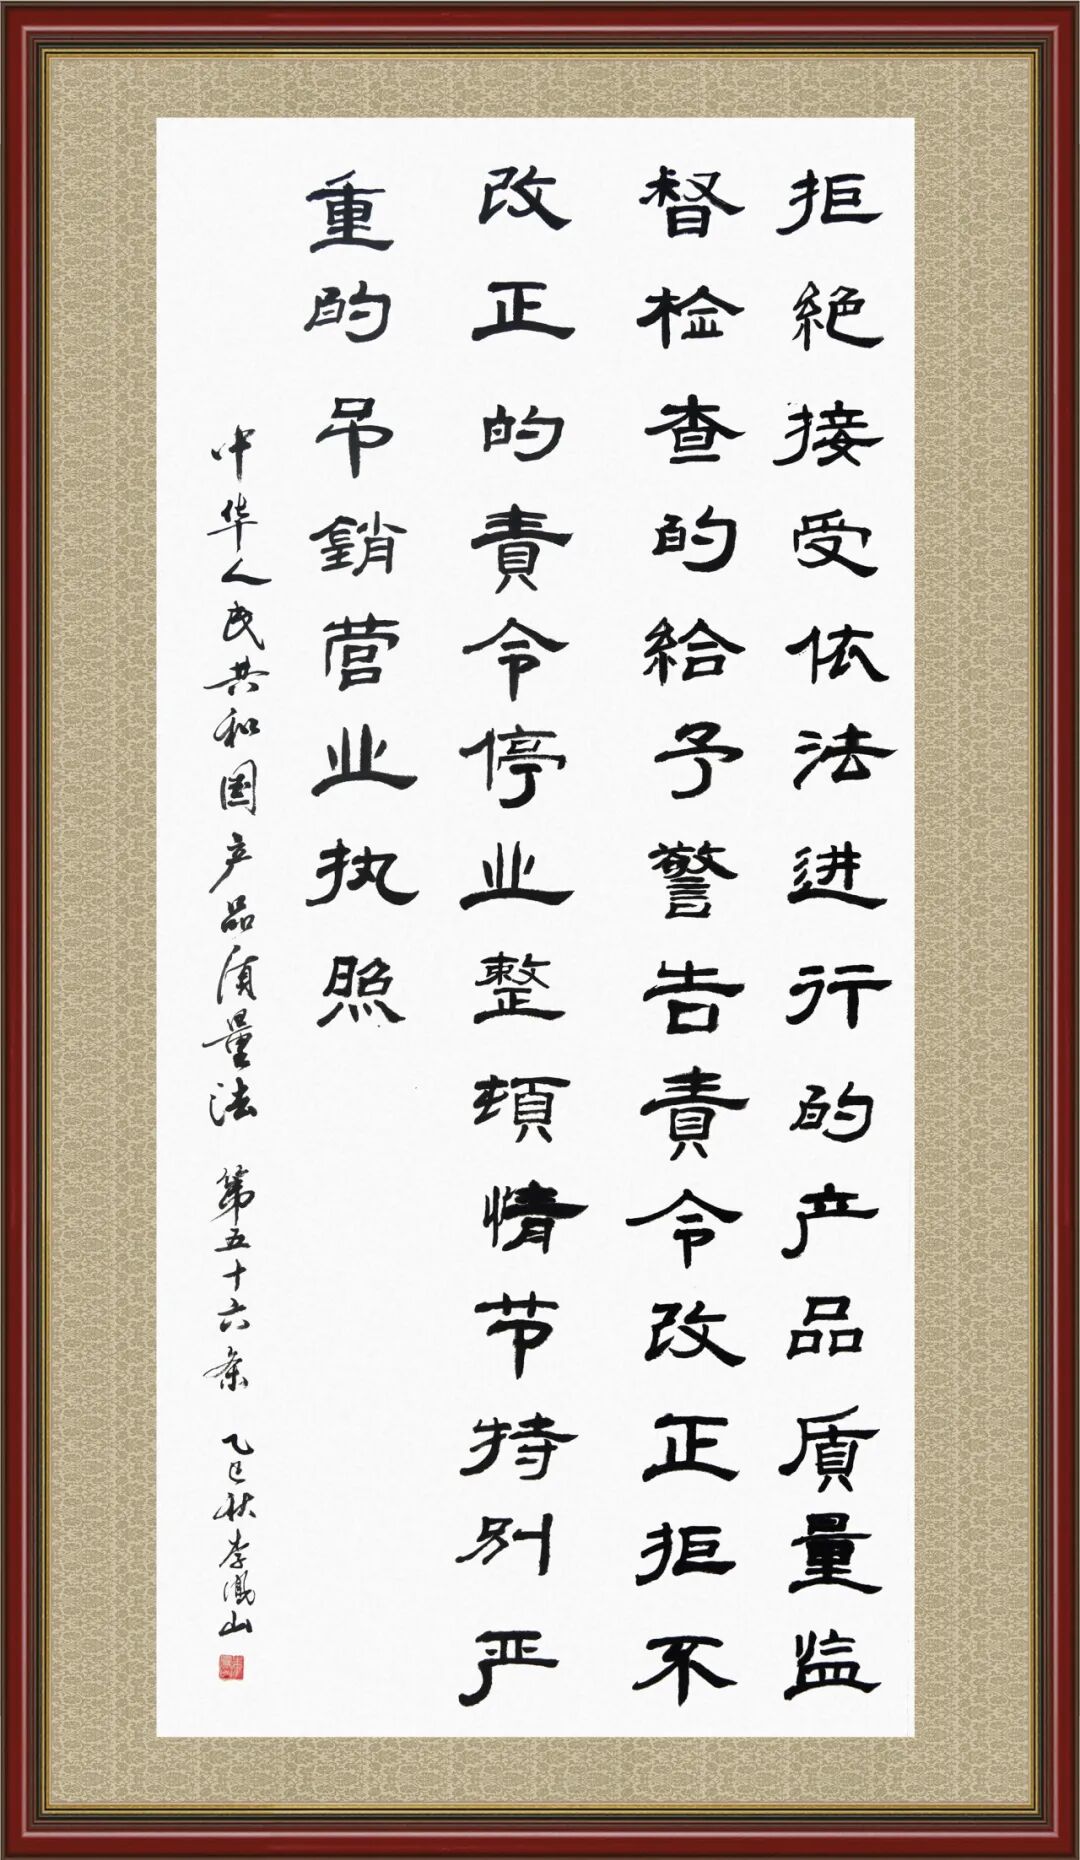 拒絶接受依法进行的产品质量监
督检查的給予警告責令改正拒不
改正的責令停业整頓情节特别严
重的吊銷营业执照
中华人民共和国产品质量法 第五十六条 乙巳秋李鳳山